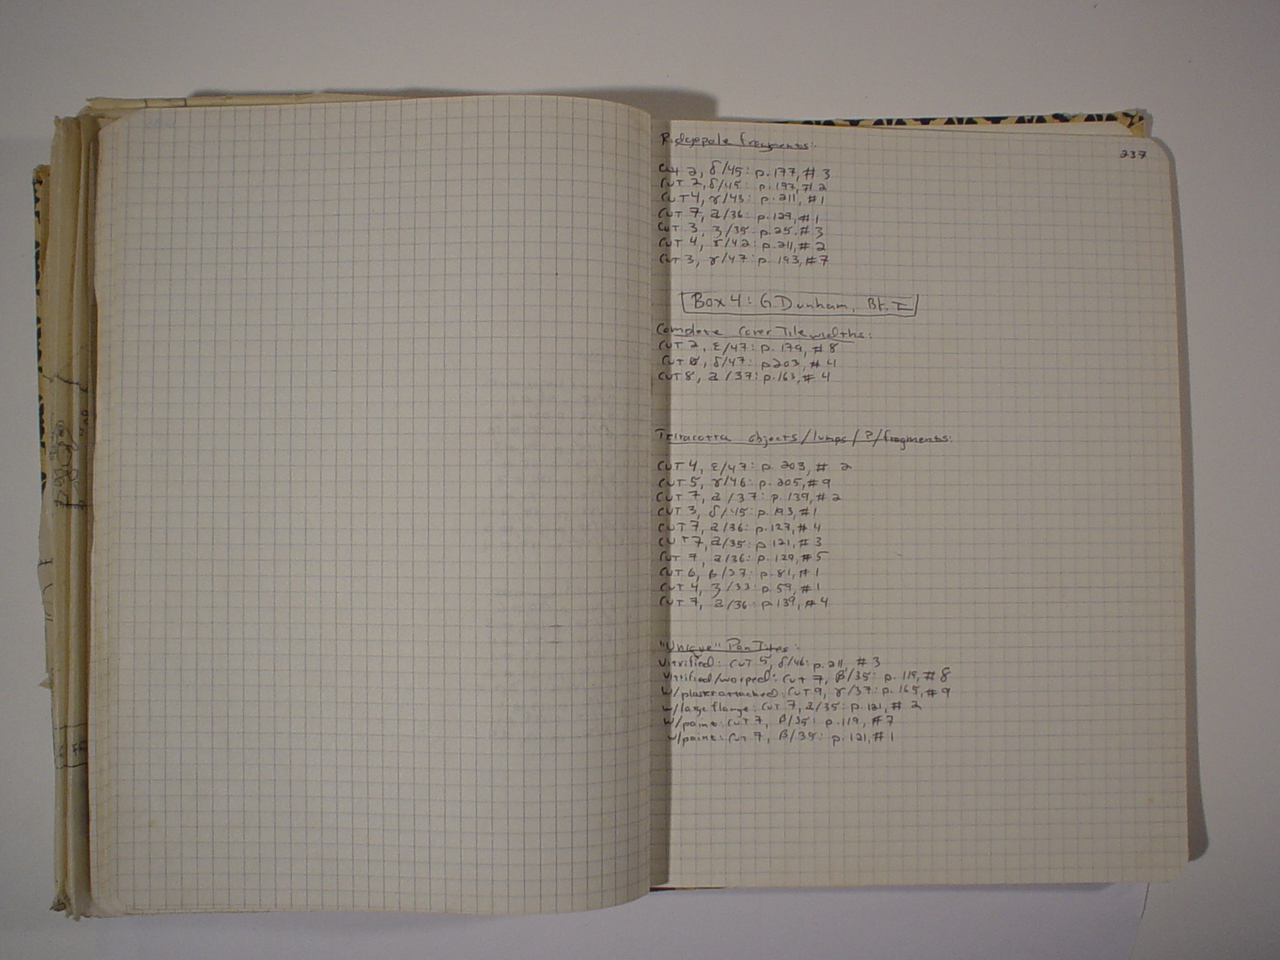 237
Ridgepole fragments:
CUT 2, δ/45: p. 177, #3
CUT 2, δ/45: p. 197, #2
CUT 4, γ/43: p. 211, #1
CUT 7, a/36: p. 129, #1
CUT 3, 3/35: p. 25, #3
CUT 4, γ/42: p. 211, #2
CUT 3, γ/47: p. 193, #7
Box 4: G. Dunham, Bk. I
Complete Cover Tile widths:
CUT 2, ε/47: p. 179, #8
CUT δ/47: p 203, #4
CUT 8, a/37: p. 163, #4
Terracotta objects/lumps/?/fragments:
CUT 4, ε/47: p. 203, # 2
CUT 5, γ/46: p. 205, #9
CUT 7, a/37: p. 139, #2
CUT 3, δ/45: p. 193, #1
CUT 7, a/36: p. 127, #4
CUT 7, a/35: p. 121, #3
CUT 7, a/36: p. 129, #5
CUT 6, β/37: p. 81, #1
CUT 4, 3/33: p. 59, #1
CUT 7, a/36: p. 139, #4
"Unique" Pan Tiles:
Vitrified: CUT 5, δ/46: p. 211, #3
Vitrified/warped: CUT 7, β/35: p. 119, #8
w/plaster attached: CUT 9, γ/37: p. 165, #9
w/large flange: CUT 7, a/35: p. 121, #2
w/paint: CUT 7, β/35: p. 119, #7
w/paint: CUT 7, β/35: p. 121, #1